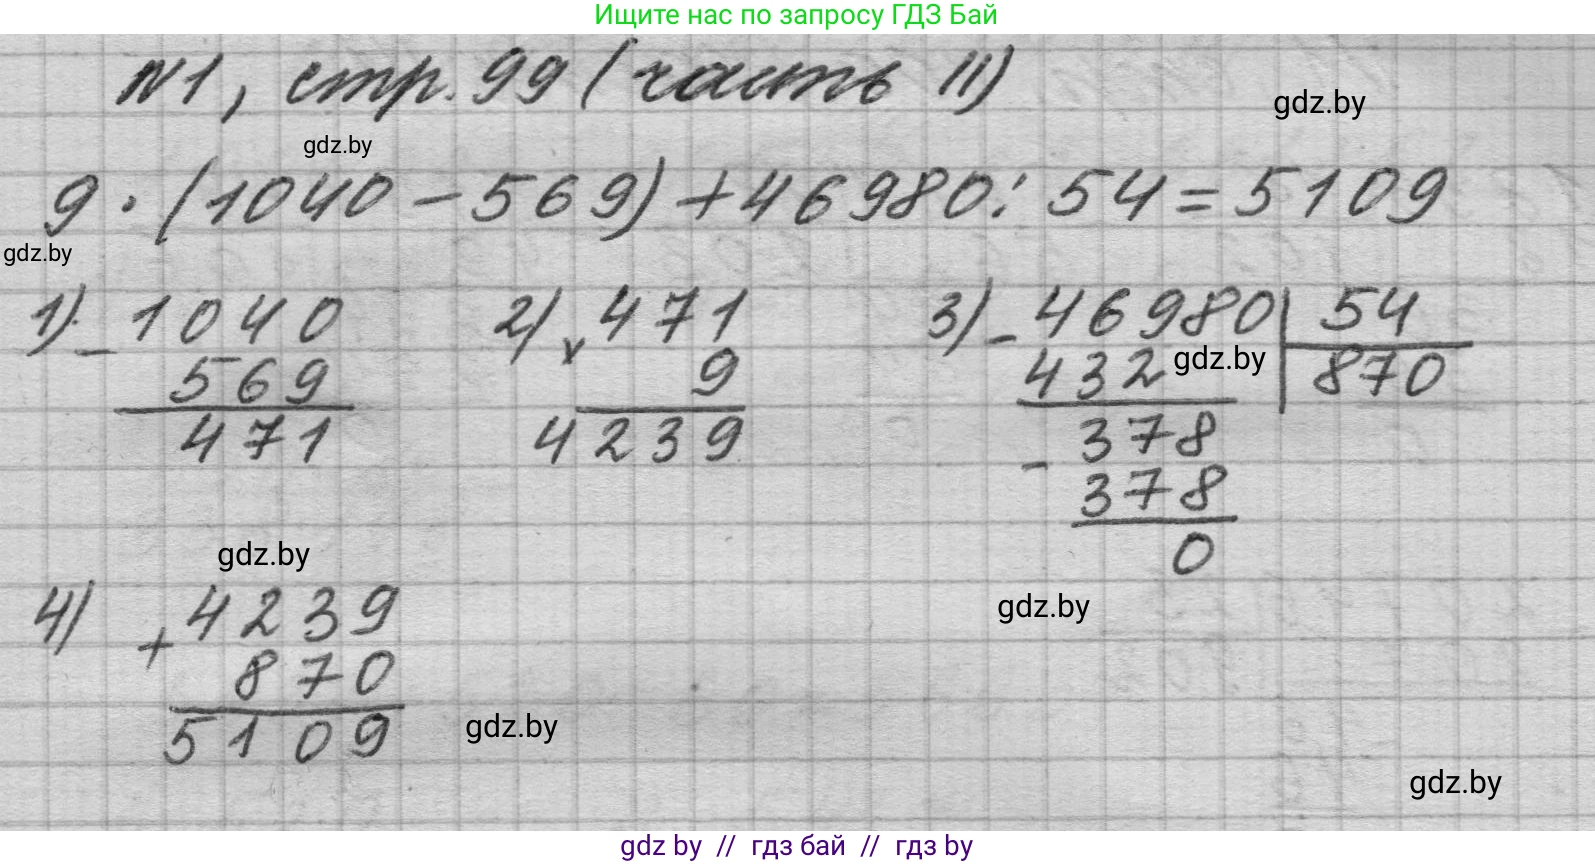 Ищите нас по запросу ГДЗ Бай
№1, стр. 99 (часть II)
gdz.by
gdz.by
9 · (1040 - 569) + 46980 : 54 = 5109
gdz.by
1) - 1040
569
471
2) x 471
9
4239
3) - 46980 | 54
432 870
gdz.by
- 378
378
0
gdz.by
4) + 4239
870
5109
gdz.by
gdz.by
gdz.by
gdz by // гдз бай // гдз by